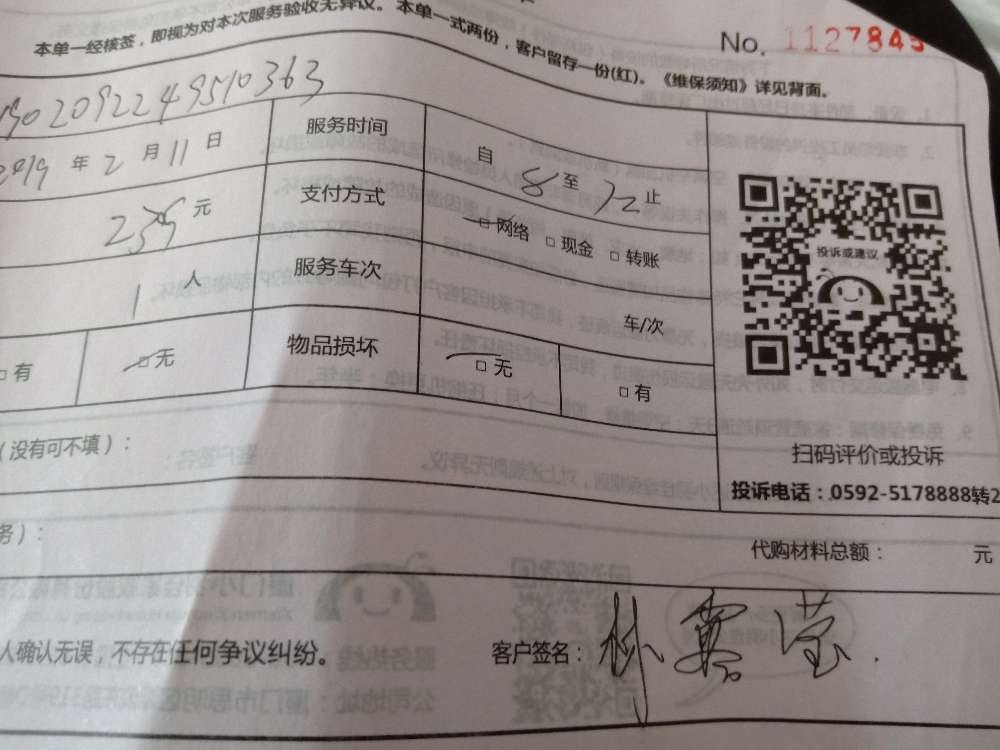 No. 1127845
本单一经核签，即视为对本次服务验收无异议。本单一式两份，客户留存一份(红)。《维保须知》详见背面。
02092249510363
2019 年 2 月 11 日
服务时间
自 8 至 12 止
元
支付方式
□ 网络 □ 现金 □ 转账
1 人
服务车次
车/次
□ 有 □ 无
物品损坏
□ 无 □ 有
投诉或建议
扫码评价或投诉
投诉电话：0592-5178888转2
（没有可不填）：
务）：
代购材料总额： 元
人确认无误，不存在任何争议纠纷。
客户签名：林露莹